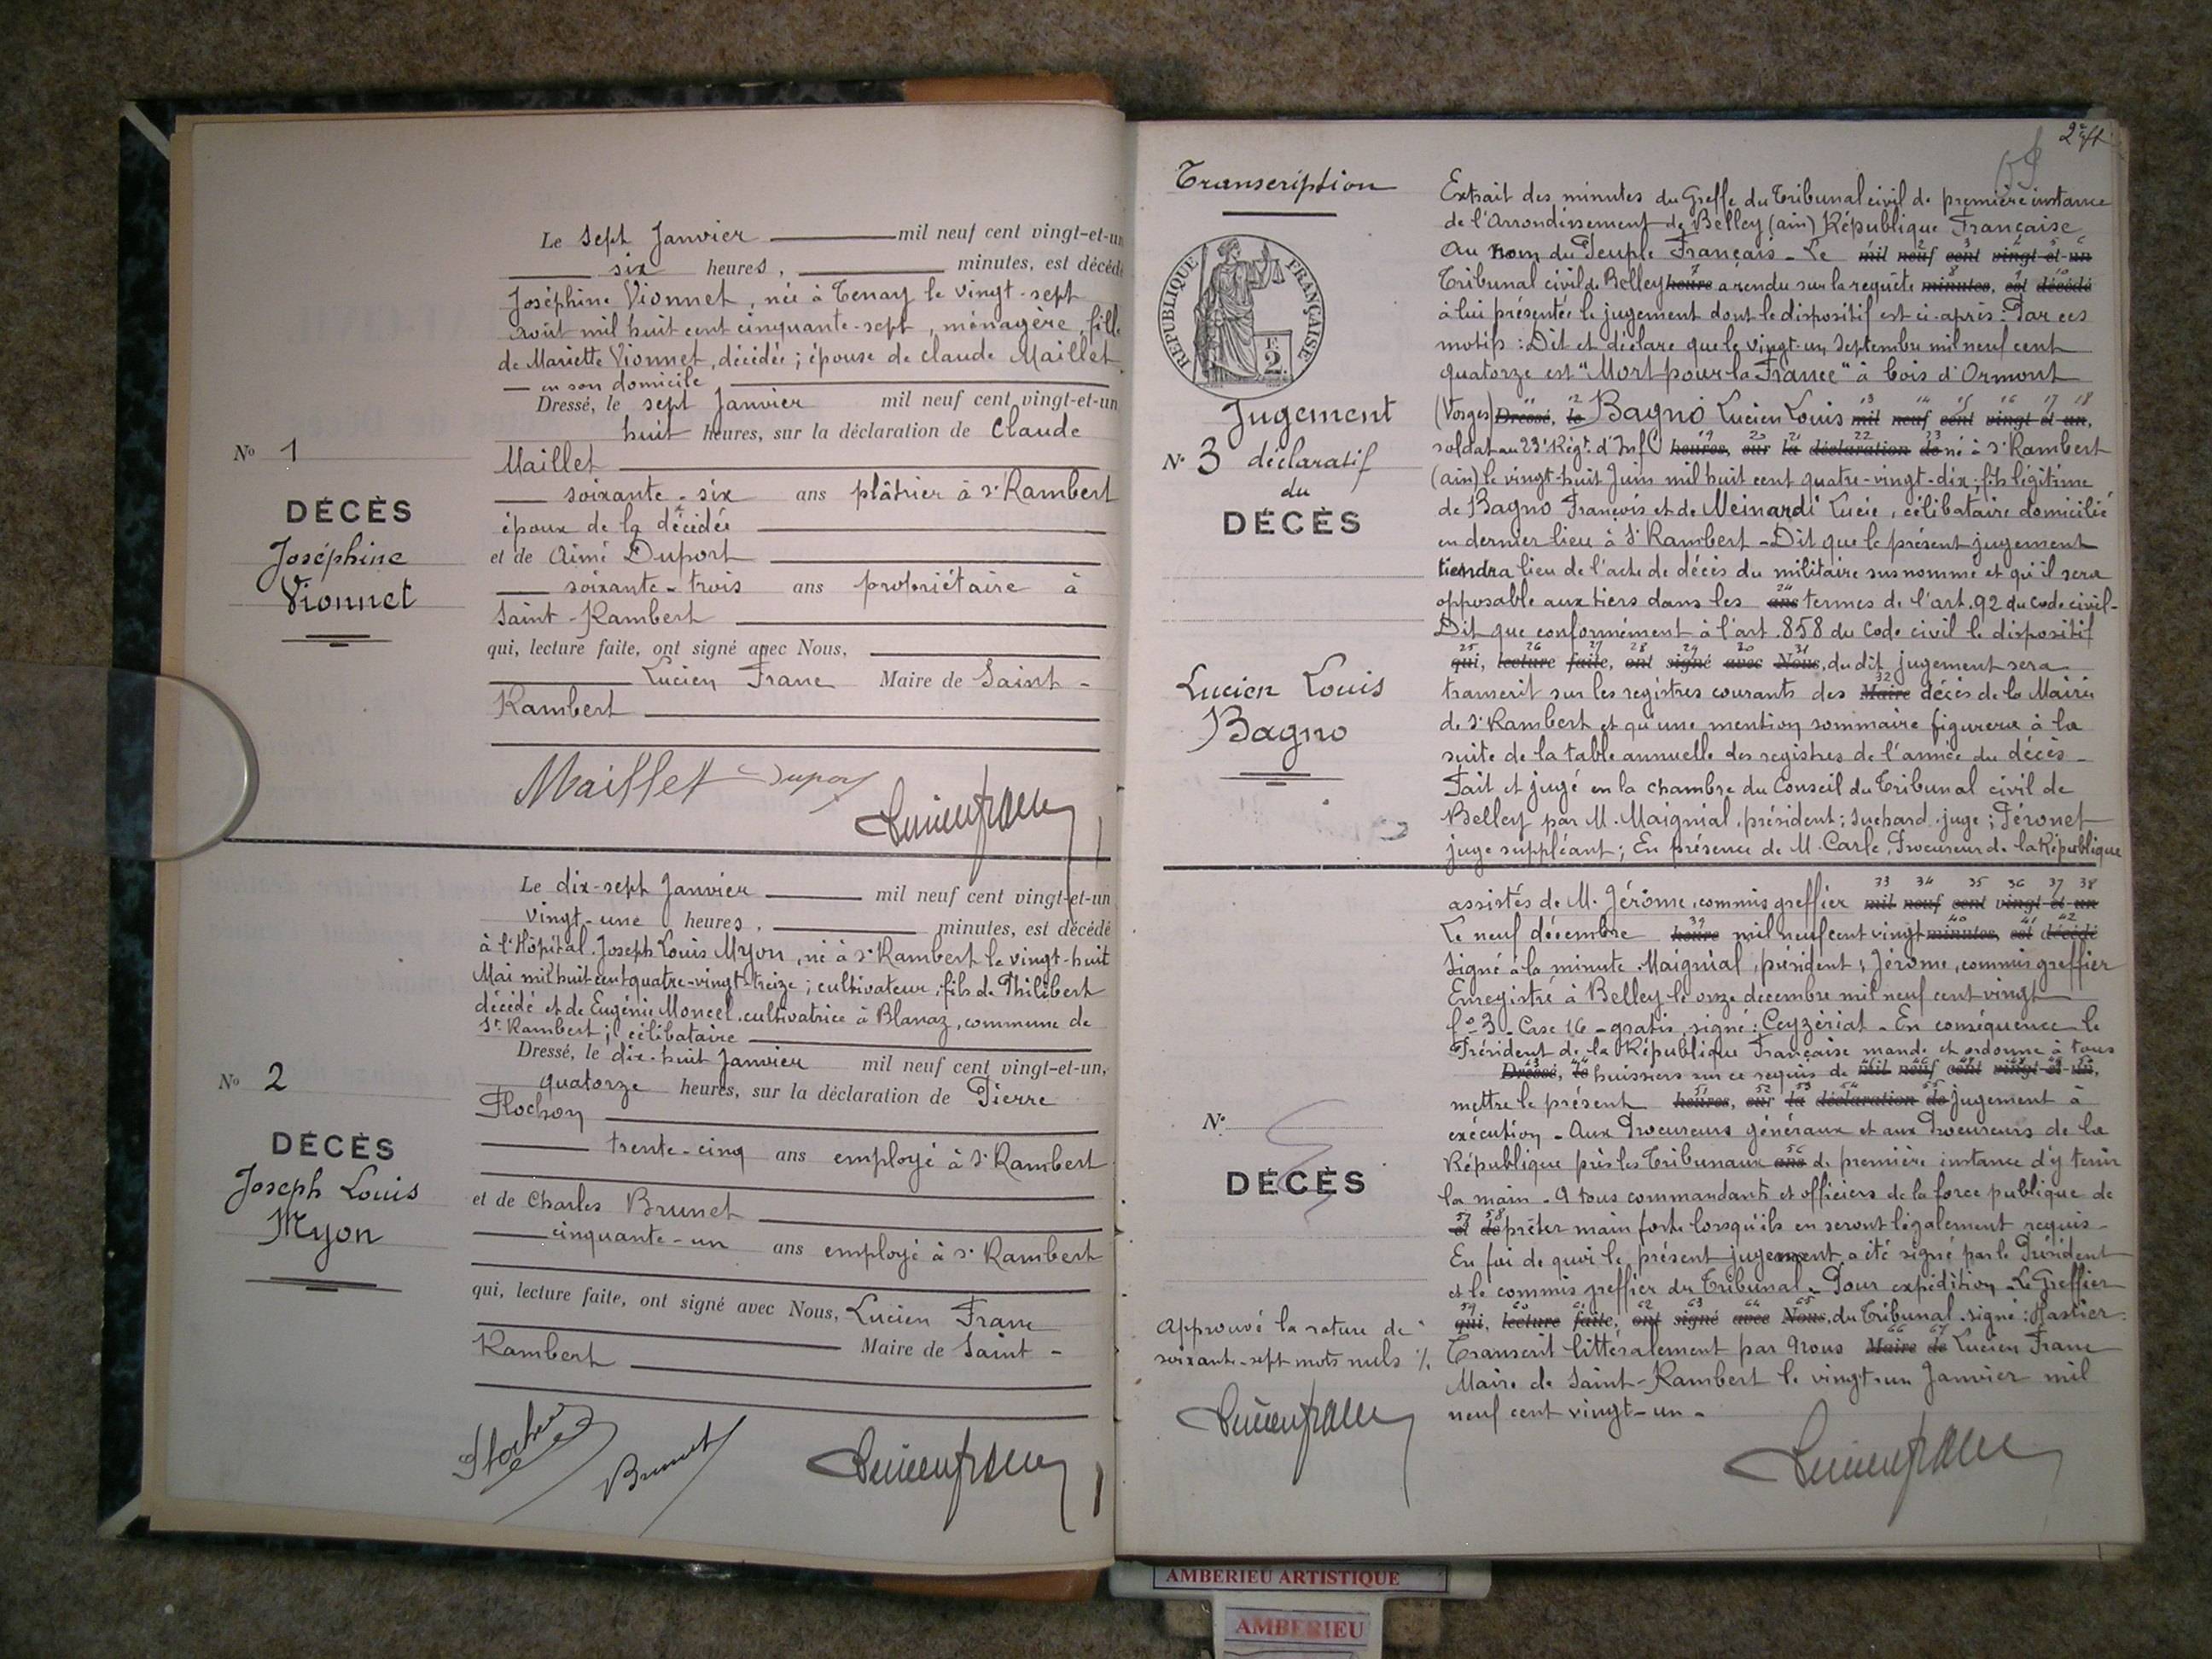 Le sept Janvier mil neuf cent vingt-et-un
six heures, minutes, est décédé
Joséphine Vionnet, née à Tenay le vingt-sept
août mil huit cent cinquante-sept, ménagère, fille
de Mariette Vionnet, décédée; épouse de Claude Maillet
en son domicile
Dressé, le sept Janvier mil neuf cent vingt-et-un
huit heures, sur la déclaration de Claude
Maillet
soixante-six ans plâtrier à St Rambert
époux de la décédée
et de Aimé Duport
soixante-trois ans propriétaire à
Saint-Rambert
qui, lecture faite, ont signé avec Nous,
Lucien Franc Maire de Saint-
Rambert
No 1
DÉCÈS
Joséphine
Vionnet
Maillet Duport
Lucien Franc
Le dix-sept Janvier mil neuf cent vingt-et-un
vingt-une heures, minutes, est décédé
à l'Hôpital Joseph Louis Myon, né à St Rambert le vingt-huit
Mai mil huit cent quatre-vingt-treize; cultivateur, fils de Philibert
décédé et de Eugénie Moncel, cultivatrice à Blanaz, commune de
St Rambert; célibataire
Dressé, le dix-huit Janvier mil neuf cent vingt-et-un,
quatorze heures, sur la déclaration de Pierre
Flochon
trente-cinq ans employé à St Rambert
et de Charles Brunet
cinquante-un ans employé à St Rambert
qui, lecture faite, ont signé avec Nous, Lucien Franc
Maire de Saint-
Rambert
No 2
DÉCÈS
Joseph Louis
Myon
Flochon
Brunet
Lucien Franc
2e ft
Transcription
RÉPUBLIQUE FRANÇAISE
2
Jugement
No 3 déclaratif
du
DÉCÈS
Lucien Louis
Bagno
Extrait des minutes du Greffe du Tribunal civil de première instance
de l'Arrondissement de Belley (ain) République Française
Au nom du Peuple Français - Le mil neuf cent vingt-et-un
Tribunal civil de Belley heure a rendu sur la requête minutes, est décédé
à lui présentée le jugement dont le dispositif est ci-après: Par ces
motifs: Dit et déclare que le vingt-un Septembre mil neuf cent
quatorze est "Mort pour la France" à bois d'Ormont
(Vosges) Dressé, le Bagno Lucien Louis mil neuf cent vingt et un,
soldat au 23e Régt. d'Infie heures, sur la déclaration de né à St Rambert
(ain) le vingt-huit Juin mil huit cent quatre-vingt-dix; fils légitime
de Bagno François et de Meinardi Lucie, célibataire domicilié
en dernier lieu à St Rambert - Dit que le présent jugement
tiendra lieu de l'acte de décès du militaire susnommé et qu'il sera
opposable aux tiers dans les ans termes de l'art. 92 du Code civil -
Dit que conformément à l'art. 858 du Code civil le dispositif
qui, lecture faite, ont signé avec Nous, du dit jugement sera
transcrit sur les registres courants des Maire décès de la Mairie
de St Rambert et qu'une mention sommaire figurera à la
suite de la table annuelle des registres de l'année du décès -
Fait et jugé en la chambre du Conseil du Tribunal civil de
Belley par M. Maignial, président; Suchard, juge; Féronet
juge suppléant; En présence de M. Carle, Procureur de la République
assistés de M. Jérôme, commis greffier mil neuf cent vingt et un
Le neuf décembre heure mil neuf cent vingt minutes, est décédé
Signé à la minute: Maignial, président; Jérôme, commis greffier
Enregistré à Belley le onze décembre mil neuf cent vingt
fo 3 - Case 16 - gratis, signé: Ceyzériat - En conséquence le
Président de la République Française mande et ordonne à tous
Dressé, le huissiers sur ce requis de mil neuf cent vingt-et-un,
mettre le présent heures, sur la déclaration de jugement à
exécution - Aux Procureurs généraux et aux Procureurs de la
République près les Tribunaux ans de première instance d'y tenir
la main - A tous commandants et officiers de la force publique de
et de prêter main forte lorsqu'ils en seront légalement requis -
En foi de quoi le présent jugement a été signé par le Président
et le commis greffier du Tribunal - Pour expédition - Le Greffier
qui, lecture faite, ont signé avec Nous, du Tribunal, signé: Hastier
Transcrit littéralement par Nous Maire de Lucien Franc
Maire de Saint-Rambert le vingt-un Janvier mil
neuf cent vingt-un -
No
DÉCÈS
Approuvé la rature de
soixante-sept mots nuls
Lucien Franc
Lucien Franc
AMBERIEU ARTISTIQUE
AMBERIEU